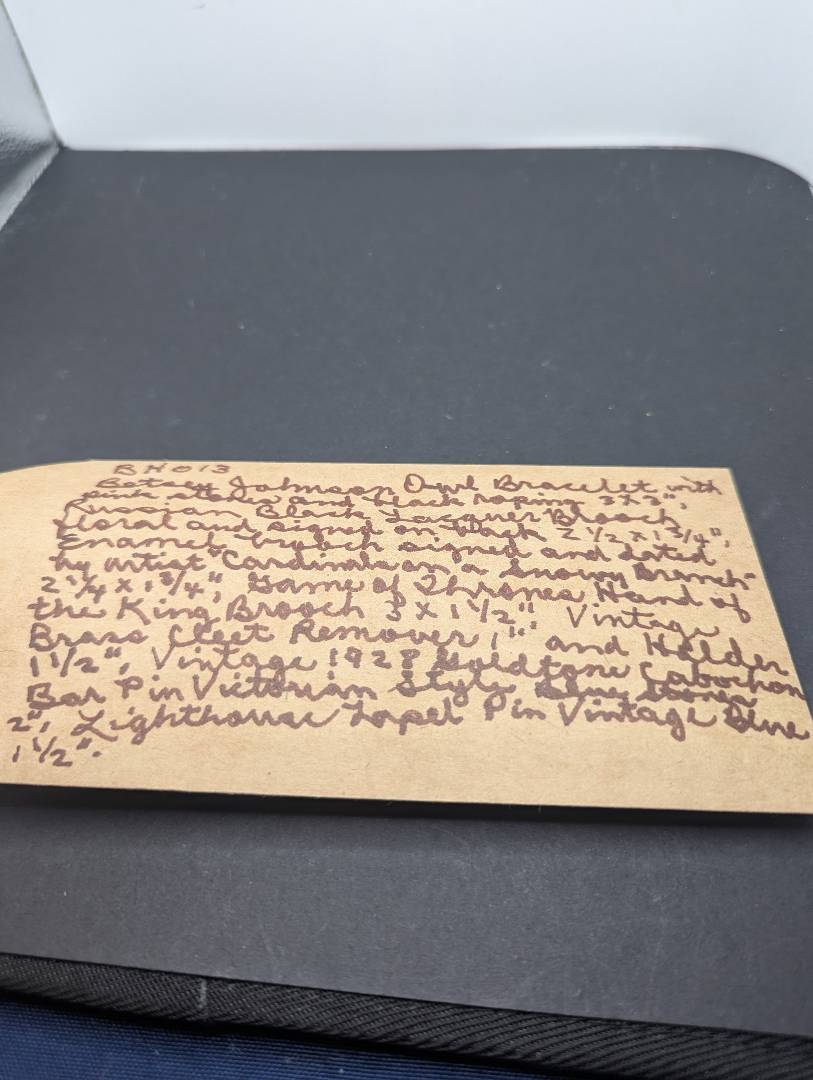 BH013
Betsey Johnson Owl Bracelet with
pink stones and black roping 3x3",
Russian Black Lacquer Brooch
floral and signed on back 2 1/2 x 1 3/4",
Enamel brooch signed and dated
by artist "Cardinals on a Snowy Branch"
2 1/4 x 1 3/4", Game of Thrones Hand of
the King Brooch 3 x 1 1/2", Vintage
Brass Cleet Remover 1" and Holder
1 1/2", Vintage 1928 Goldtone Cabochon
Bar Pin Victorian Style Blue Stones
2", Lighthouse Lapel Pin Vintage Blue
1 1/2".